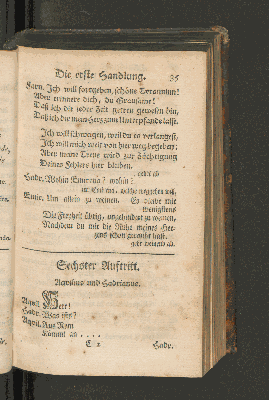 Die erste Handlung. 35
Farn. Jch will fortgehen, schöne Tyranninn!
Aber erinnere dich, du Grausame!
Daß ich dir jeder Zeit getreu gewesen bin,
Daß ich dir mein Herz zum Unterpfande lasse.
Jch will schweigen, weil du es verlangest,
Jch will mich weit von hier weg begeben;
Aber meine Treue wird zur Züchtigung
Deines Fehlers hier bleiben.
geht ab
Hadr. Wohin Emirena? wohin?
Emir. Um allein zu weinen. Es bleibe mir
wenigstens
Die Freyheit übrig, ungehindert zu weinen,
Nachdem du mir die Ruhe meines Her-
zens schon geraubt hast.
geht weinend ab.
Sechster Auftritt.
Aqvilius und Hadrianus.
Aqvil. Herr!
Hadr. Was ists?
Aqvil. Aus Rom
Kömmt an . . . .
Hadr.